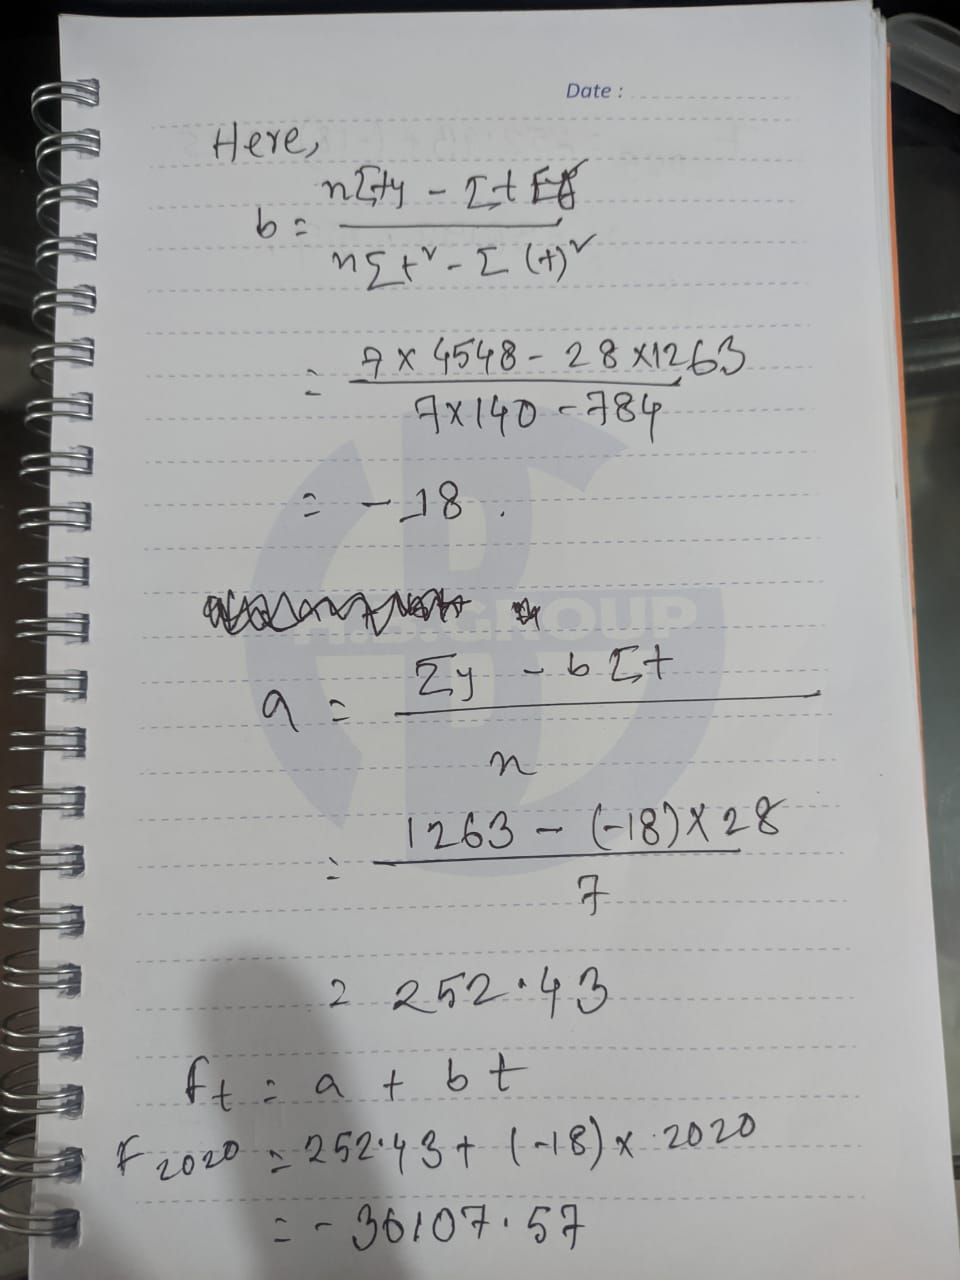 Date :
Here,
b = nΣty - Σt Σy
nΣt² - Σ(t)²
= 7 × 4548 - 28 × 1263
7 × 140 - 784
= -18.
GROUP
a = Σy - bΣt
n
= 1263 - (-18) × 28
7
= 252.43
Ft = a + bt
F2020 = 252.43 + (-18) × 2020
= -36107.57